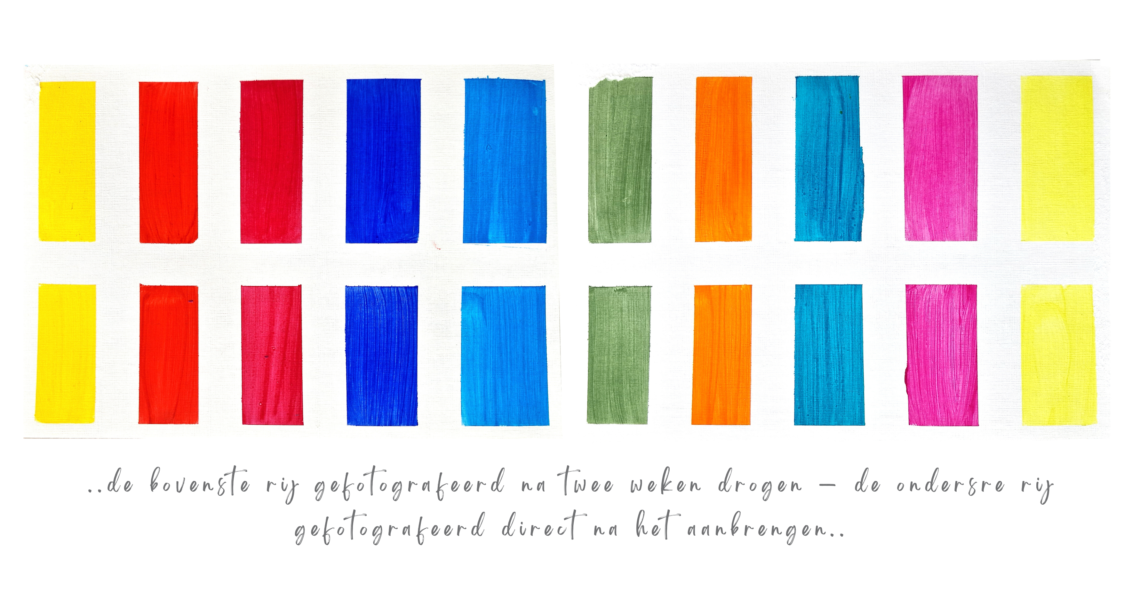 ..de bovenste rij gefotografeerd na twee weken drogen – de ondersre rij
gefotografeerd direct na het aanbrengen..